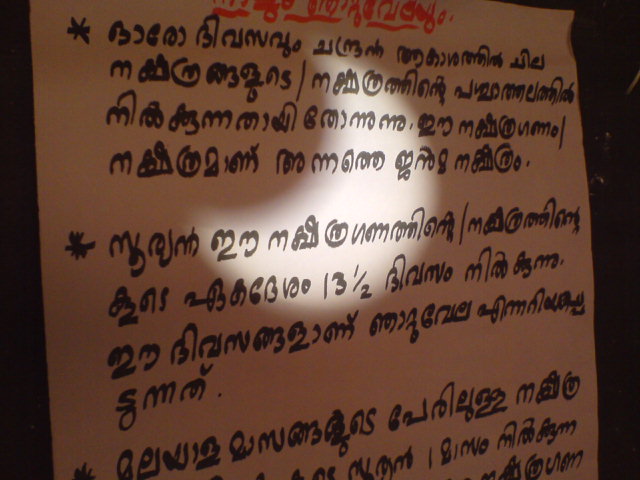 നാളും ഞാറ്റുവേലയും.
* ഓരോ ദിവസവും ചന്ദ്രൻ ആകാശത്തിൽ ചില
നക്ഷത്രങ്ങളുടെ / നക്ഷത്രത്തിന്റെ പശ്ചാത്തലത്തിൽ
നിൽക്കുന്നതായി തോന്നുന്നു. ഈ നക്ഷത്രഗണം /
നക്ഷത്രമാണ് അന്നത്തെ ജന്മ നക്ഷത്രം.
* സൂര്യൻ ഈ നക്ഷത്രഗണത്തിന്റെ / നക്ഷത്രത്തിന്റെ
കൂടെ ഏകദേശം 13 1/2 ദിവസം നിൽക്കുന്നു.
ഈ ദിവസങ്ങളാണ് ഞാറ്റുവേല എന്നറിയപ്പെ
ട്ടുന്നത്.
* മലയാള മാസങ്ങളുടെ പേരിലുള്ള നക്ഷത്ര
കൂടെ സൂര്യൻ 1 മാസം നിൽക്കുന്ന
നക്ഷത്രഗണ